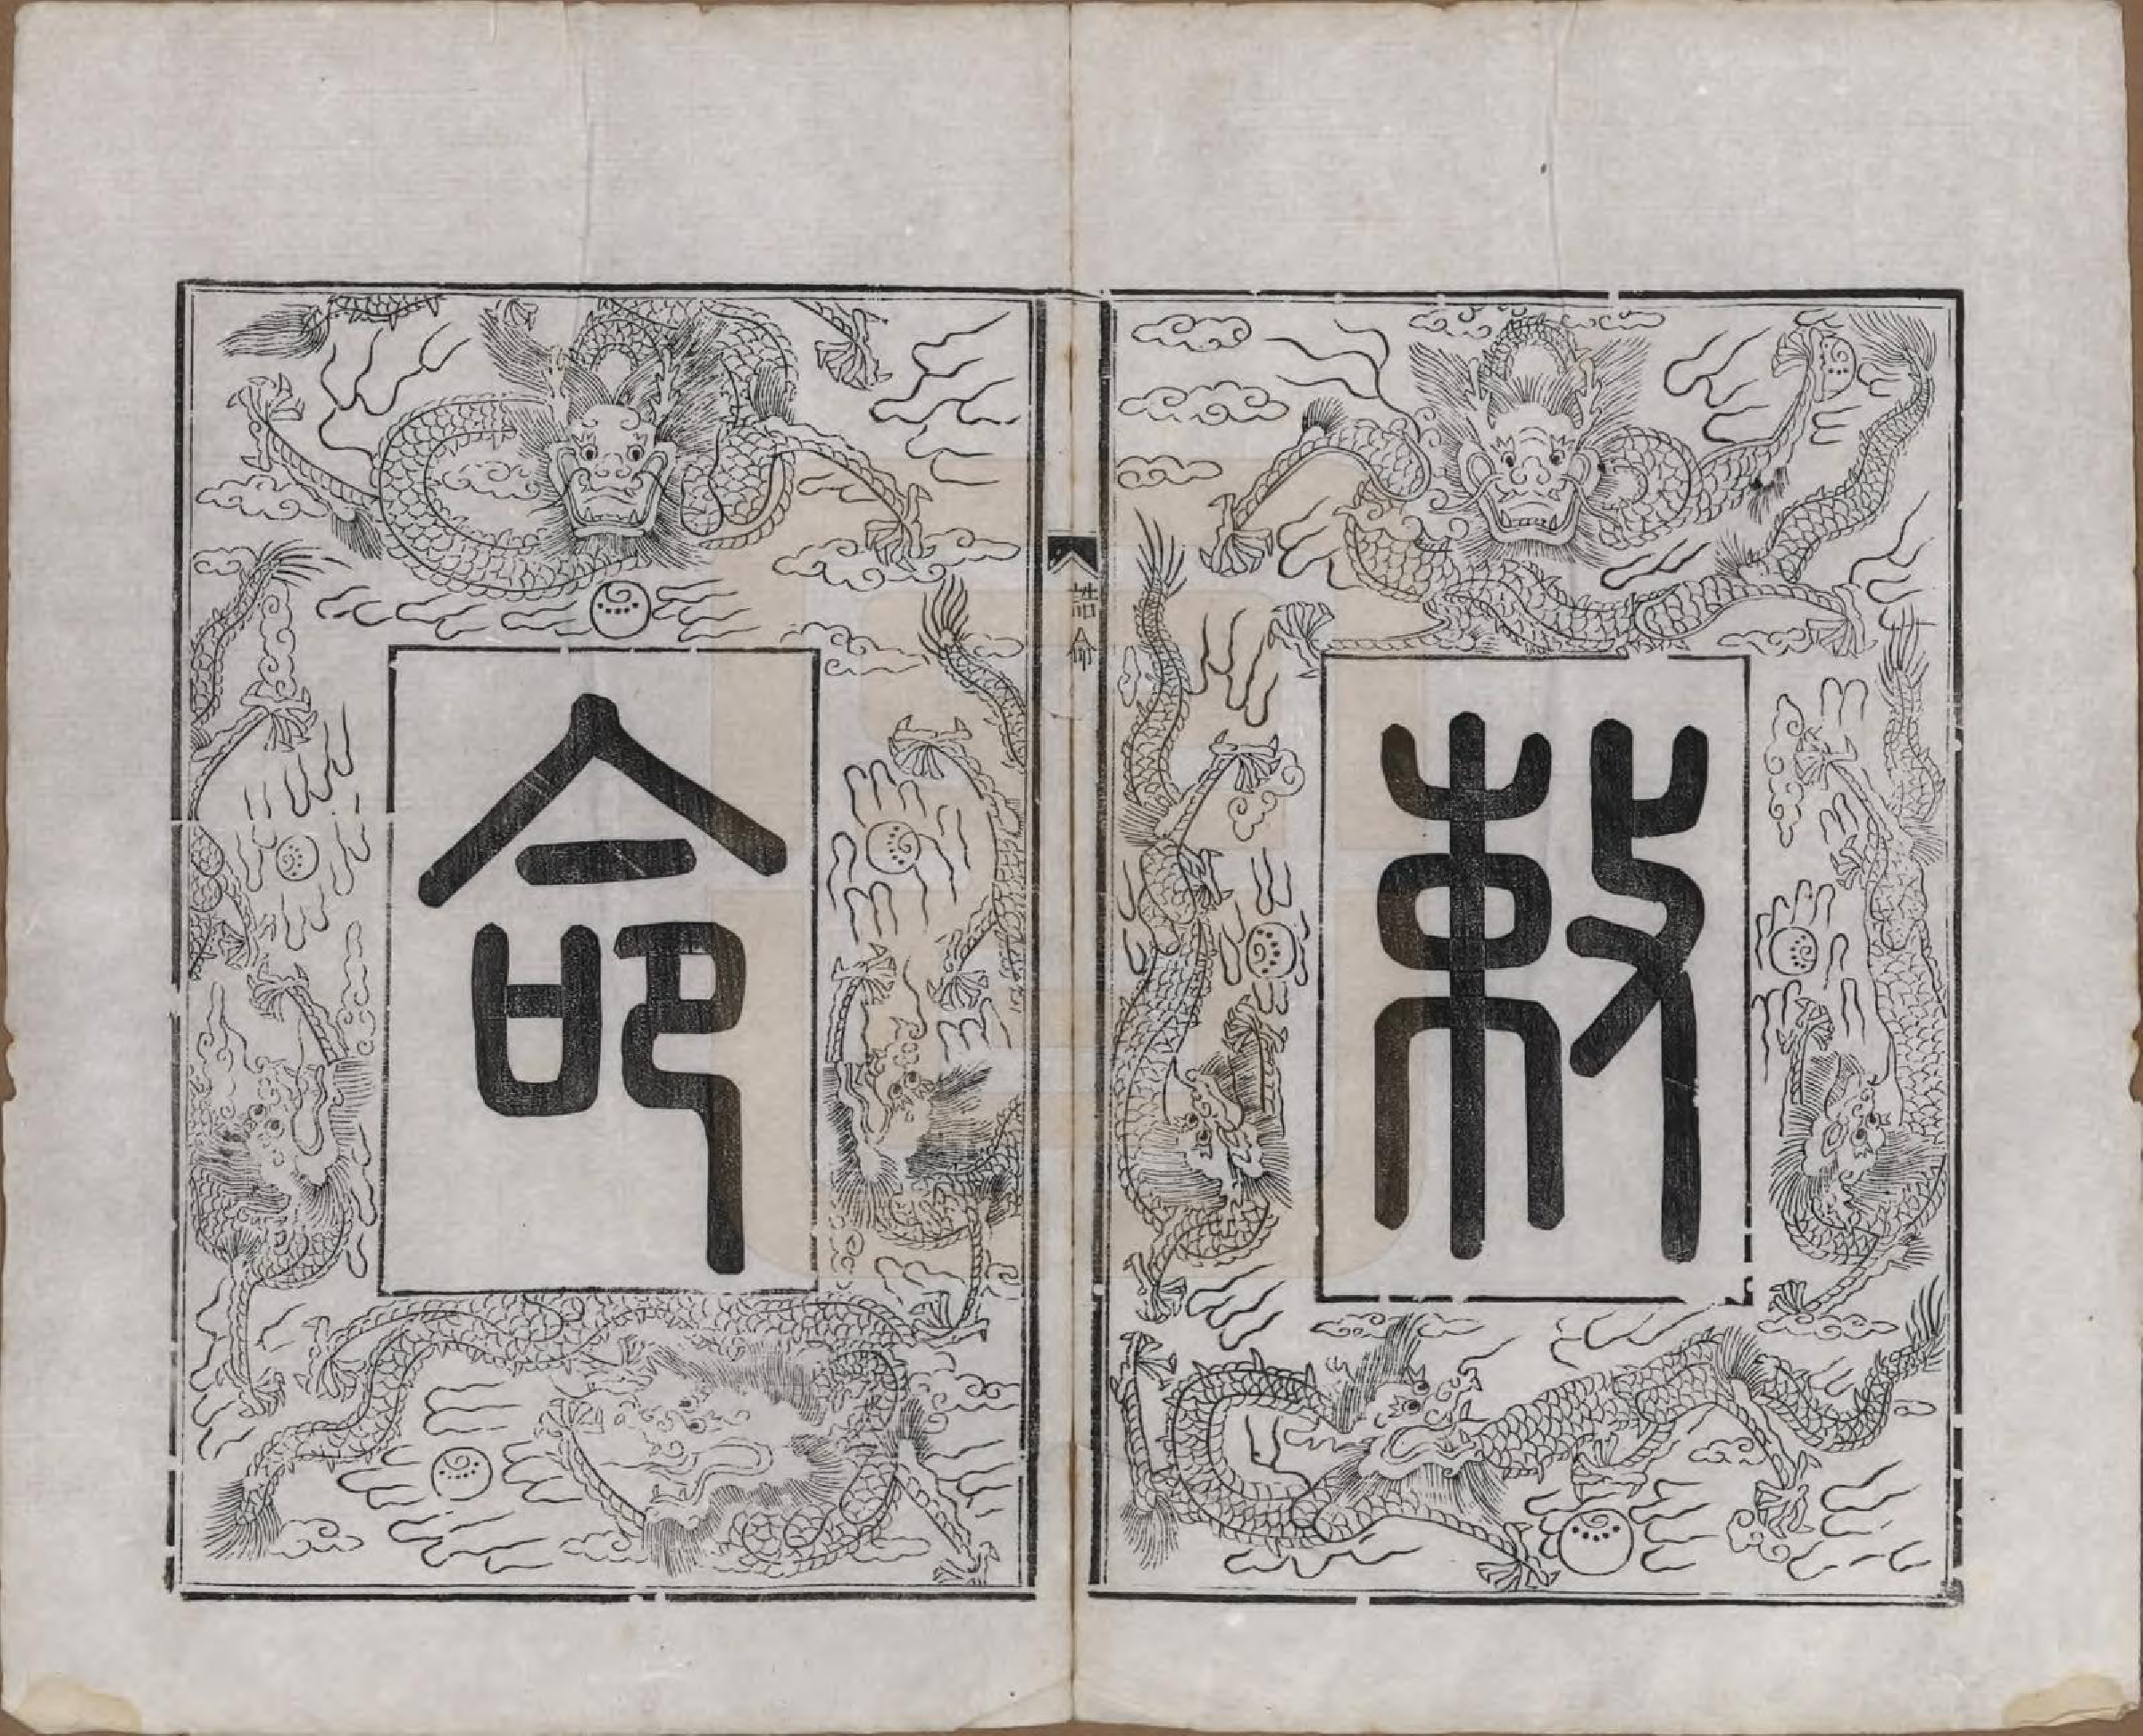 敕
命
誥命